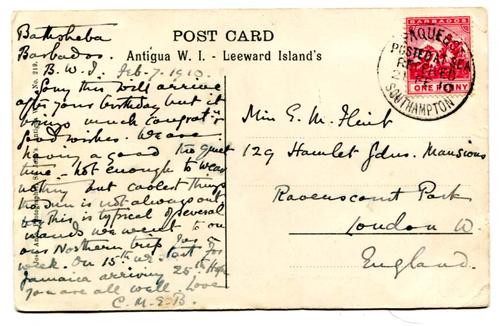 POST CARD
Antigua W. I. - Leeward Island's
Bathsheba
Barbados.
B. W. I. Feb. 7. 1910.
Sorry this will arrive
after your birthday but it
brings much congrat &
good wishes. We are
having a good tho quiet
time - not enough to wear
nothing but coolest things
tho sun is not always out
this is typical of several
islands we went to on
our Northern trip for a
week. On 15th we start for
Jamaica arriving 25th Hope
you are all well. Love
C. M. E. B.
BARBADOS
ONE PENNY
PAQUEBOT
POSTED AT SEA
RECEIVED
FE 10
SOUTHAMPTON
Miss G. M. Flint
129 Hamlet Gdns. Mansions
Ravenscourt Park
London W.
England.
St. John's
No. 219.